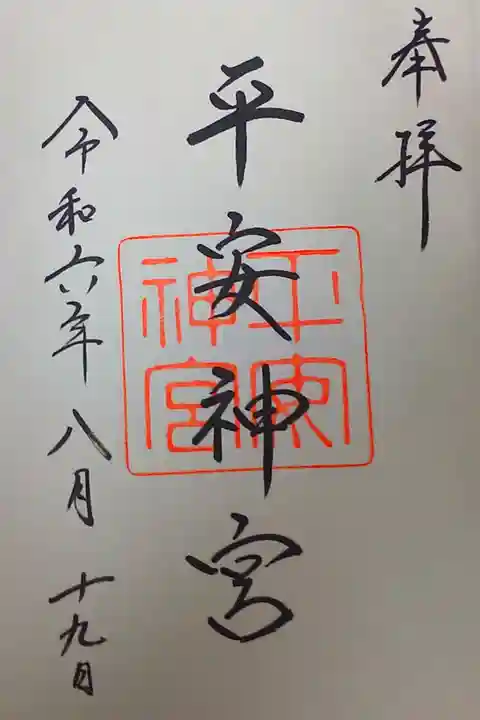 奉拝
平安神宮
平安神宮
令和六年八月十九日